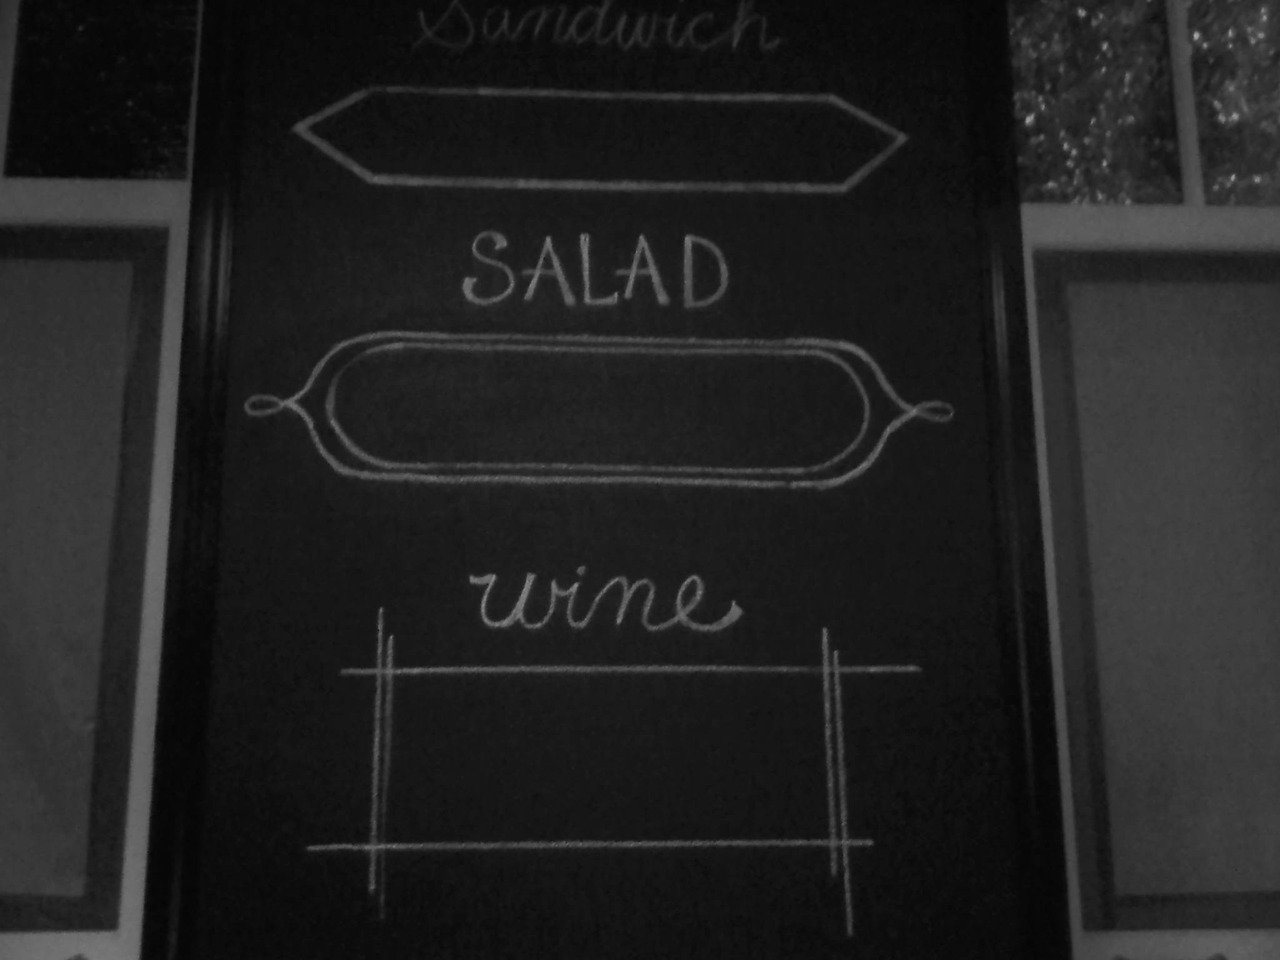 Sandwich
SALAD
wine